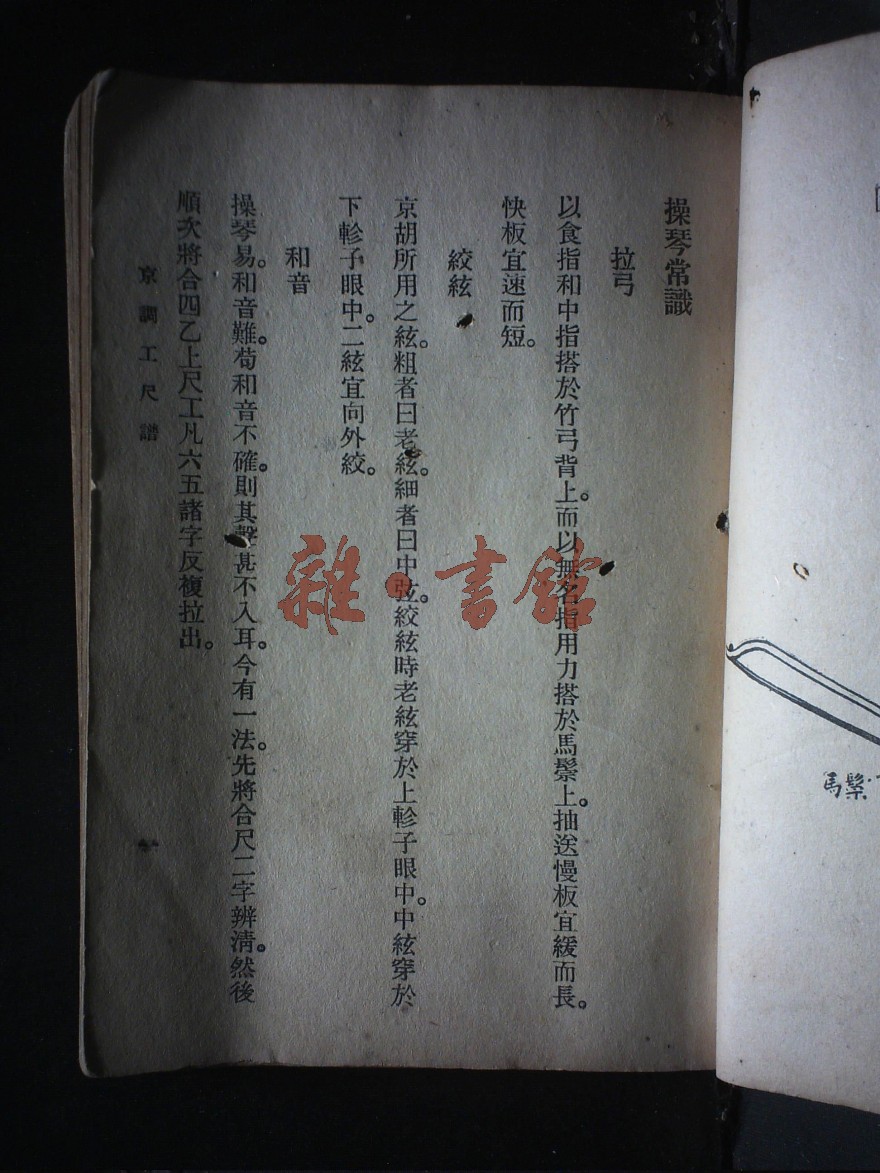 操琴常識
拉弓
以食指和中指搭於竹弓背上。而以無名指用力搭於馬鬃上。抽送慢板宜緩而長。
快板宜速而短。
絞絃
京胡所用之絃。粗者曰老絃。細者曰中弦。絞絃時老絃穿於上軫子眼中。中絃穿於
下軫子眼中。二絃宜向外絞。
和音
操琴易。和音難。苟和音不確。則其聲甚不入耳。今有一法。先將合尺二字辨清。然後
順次將合四乙上尺工凡六五諸字反複拉出。
京調工尺譜
馬鬃
雜·書館